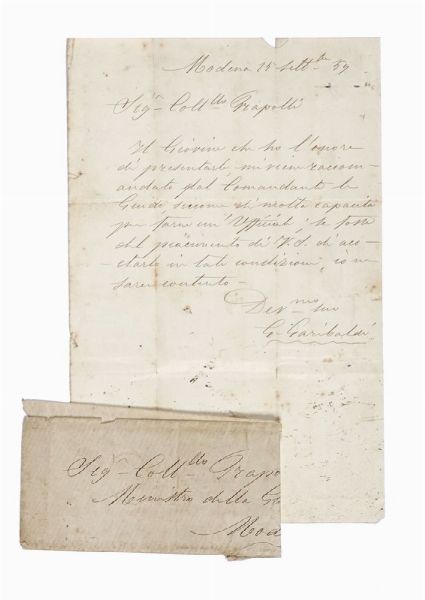 Modena 15 Sett.bre 59
Sig.r Coll.llo Frapolli
Il Giovine che ho l'onore
di presentarle mi vien raccom-
andato dal Comandante le
Guide siccome di molta capacità
per farne un' Ufficial, se fosse
del piacimento di V.S. di acc-
ettarlo in tale condizione, io ne
sarei contento -
Dev.mo suo
G. Garibaldi
Sig.r Coll.llo Frapo
Ministro della G
Mod